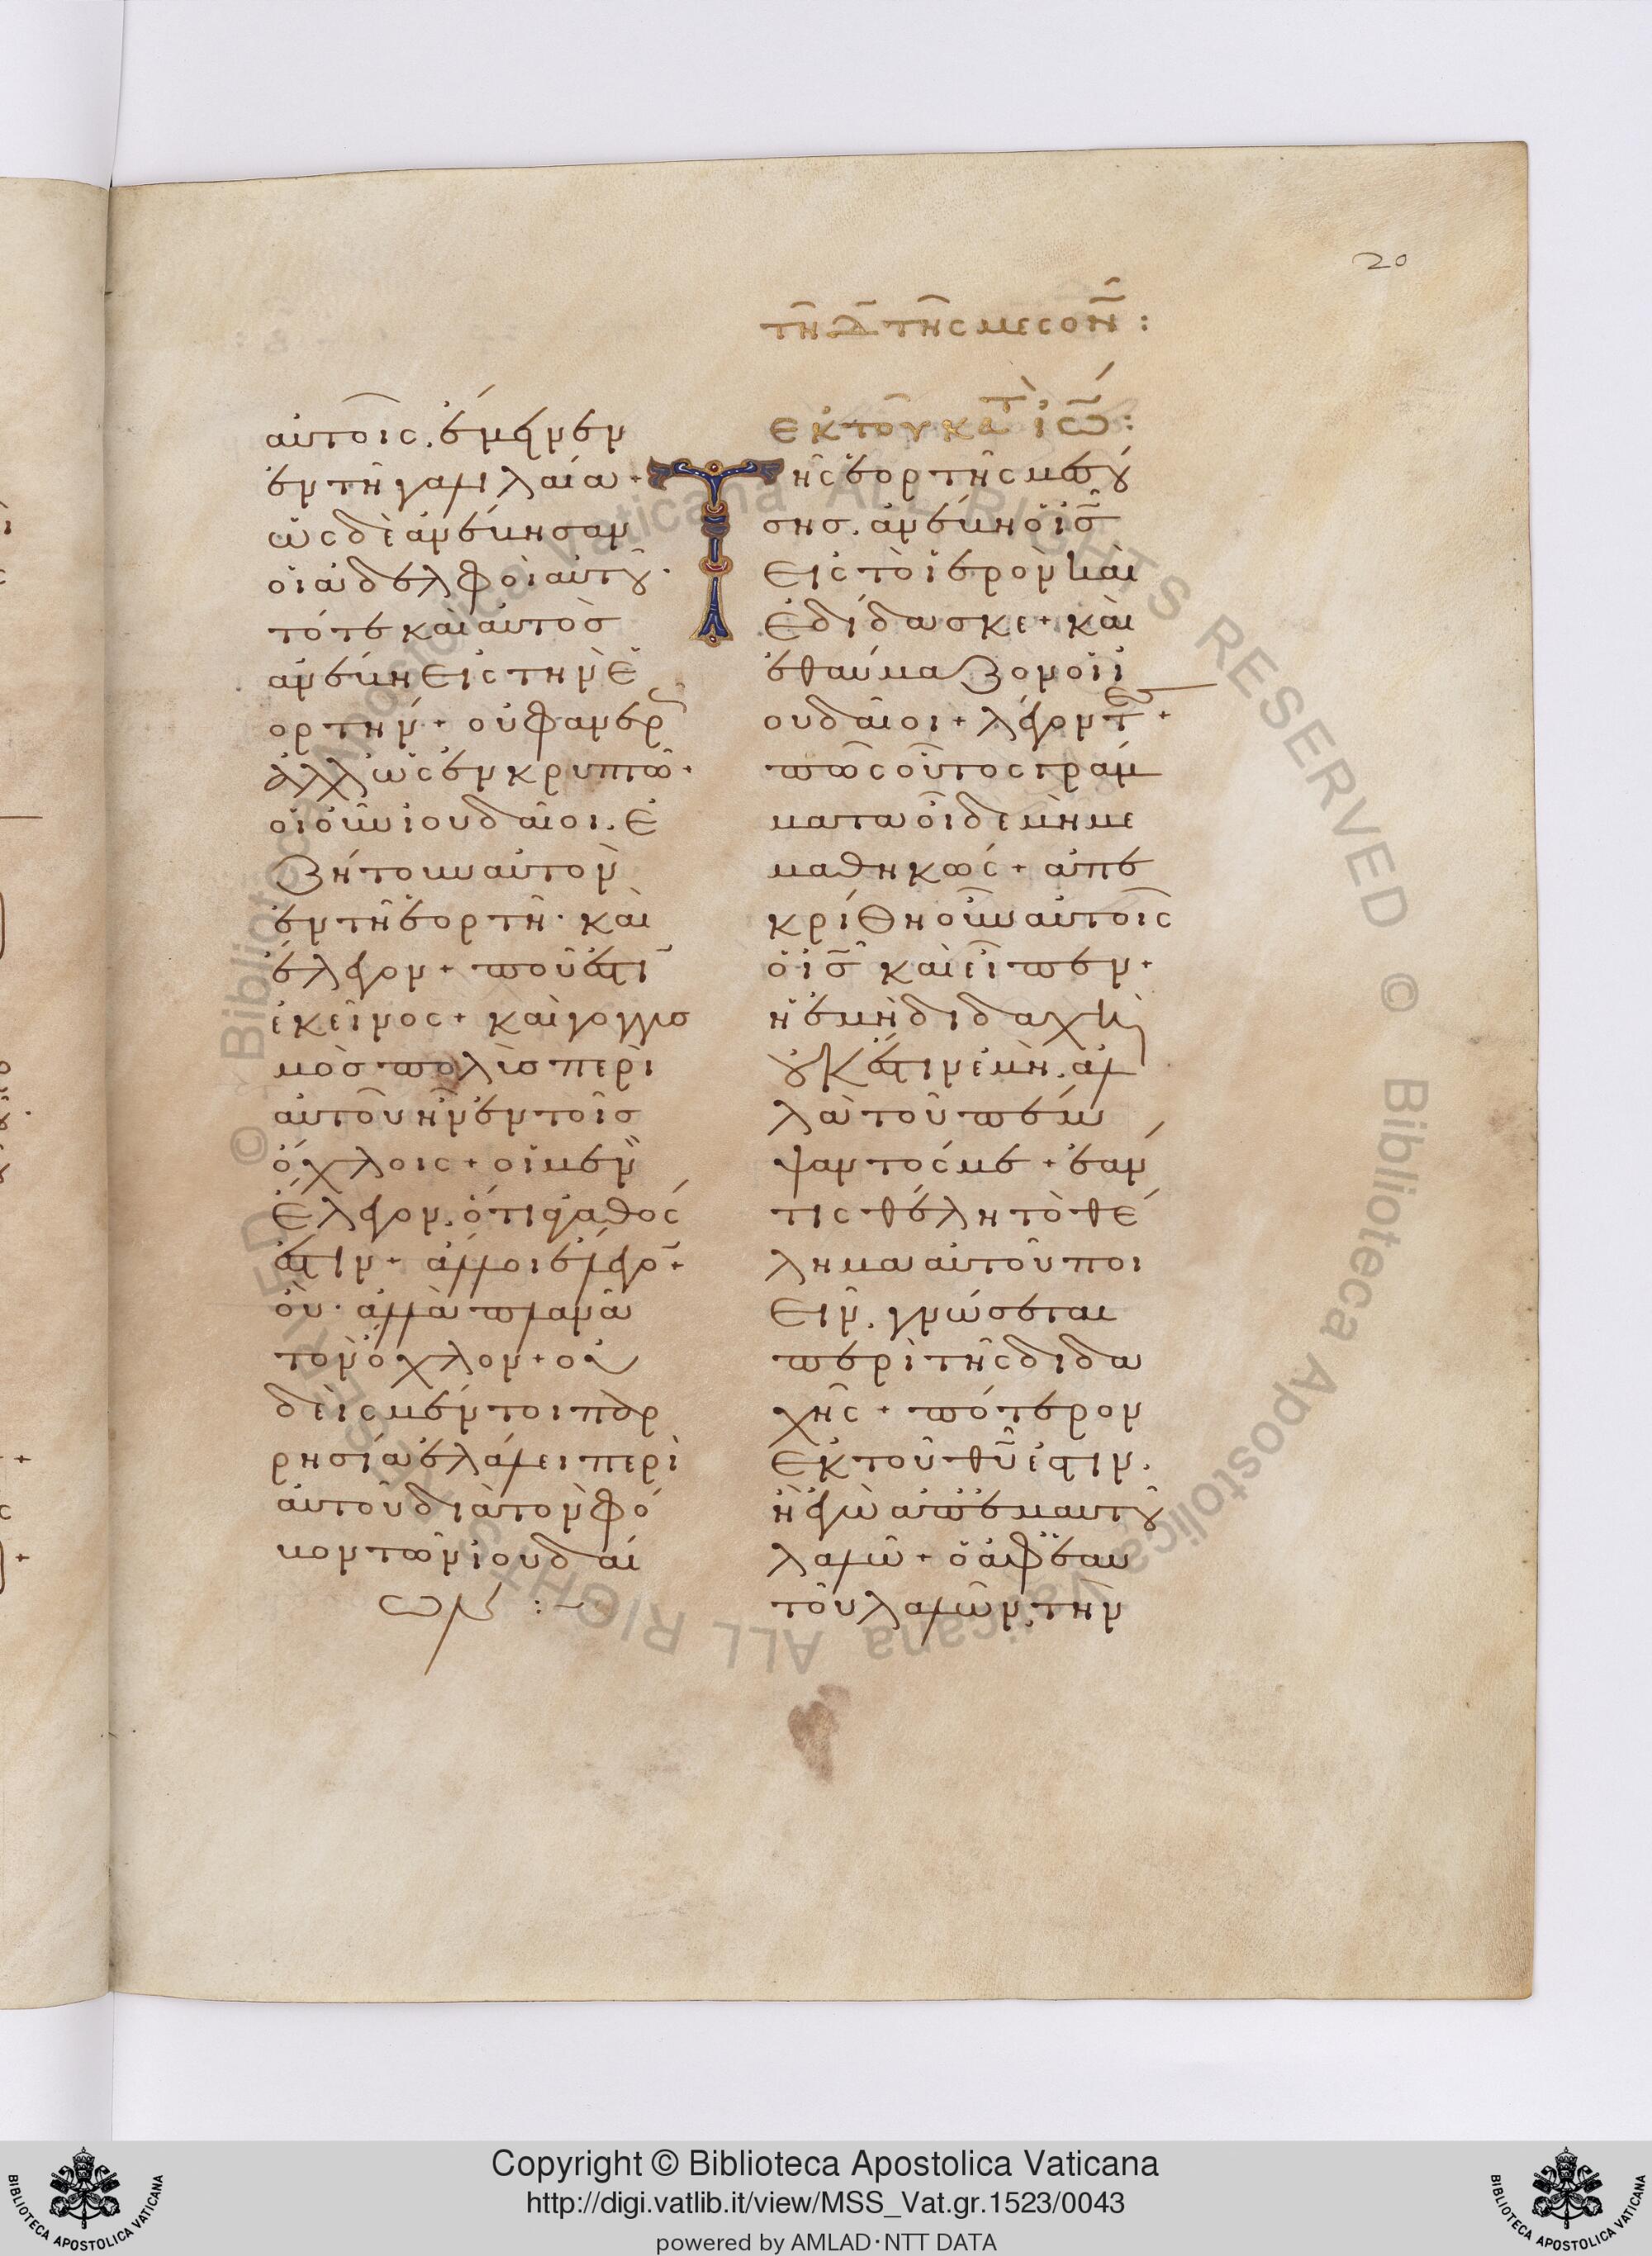 20
τῆ δ̄ τῆς μεσον̄ :
αὐτοῖς. ἔμεινεν
ἐν τῆ γαλιλαία.
ὡς δὲ ἀνέβησαν
οἱ ἀδελφοὶ αὐτοῦ.
τότε καὶ αὐτὸσ
ἀνέβη εἰς τὴν ἑ
ορτήν + οὐ φανερ
ἀλλ ὡς ἐν κρυπτῶ.
οἱ οὖν ἰουδαῖοι. ἐ
ζήτουν αὐτὸν
ἐν τῆ ἑορτῆ. καὶ
ἔλεγον + ποῦ ἐστῖ
ἐκεῖνος + καὶ γογγυσ
μὸσ πολὺσ περὶ
αὐτοῦ ἦν ἐν τοῖσ
ὄχλοις + οἱ μὲν
ἔλεγον. ὅτι ἀγαθός
ἐστιν + ἄλλοι ἔλεγο̄ +
οὐ. ἀλλὰ πλανᾶ
τὸν ὄχλον + οὐ
δεὶς μέντοι παρ
ρησία ἐλάλει περὶ
αὐτοῦ διὰ τὸν φό
βον τῶν ἰουδαί
ων :~
ἐκ τοῦ κατ ἰω̄ :
Τῆς ἑορτῆς μεσού
σησ. ἀνέβη ὁ ις̄
εἰς τὸ ἱερὸν καὶ
ἐδίδασκε + καὶ
ἐθαύμαζον οἱ ἰ
ουδαῖοι + λέγοντες +
πῶς οὗτος γράμ
ματα οἶδε μὴ με
μαθηκώς + ἀπε
κρίθη οὖν αὐτοῖς
ὁ ις̄ καὶ εἶπεν +
ἡ ἐμὴ διδαχὴ
οὐκ ἔστιν ἐμὴ. ἀλ
λὰ τοῦ πέμ
ψαντός με + ἐάν
τις θέλη τὸ θέ
λημα αὐτοῦ ποι
εῖν. γνώσεται
περὶ τῆς διδα
χῆς + πότερον
ἐκ τοῦ θῡ ἐστιν.
ἢ ἐγὼ ἀπ ἐμαυτοῦ
λαλῶ + ὁ ἀφ ἑαυ
τοῦ λαλῶν, τὴν
Copyright © Biblioteca Apostolica Vaticana
http://digi.vatlib.it/view/MSS_Vat.gr.1523/0043
powered by AMLAD·NTT DATA
BIBLIOTECA APOSTOLICA VATICANA
BIBLIOTECA APOSTOLICA VATICANA
© Biblioteca Apostolica Vaticana ALL RIGHTS RESERVED
© Biblioteca Apostolica Vaticana ALL RIGHTS RESERVED